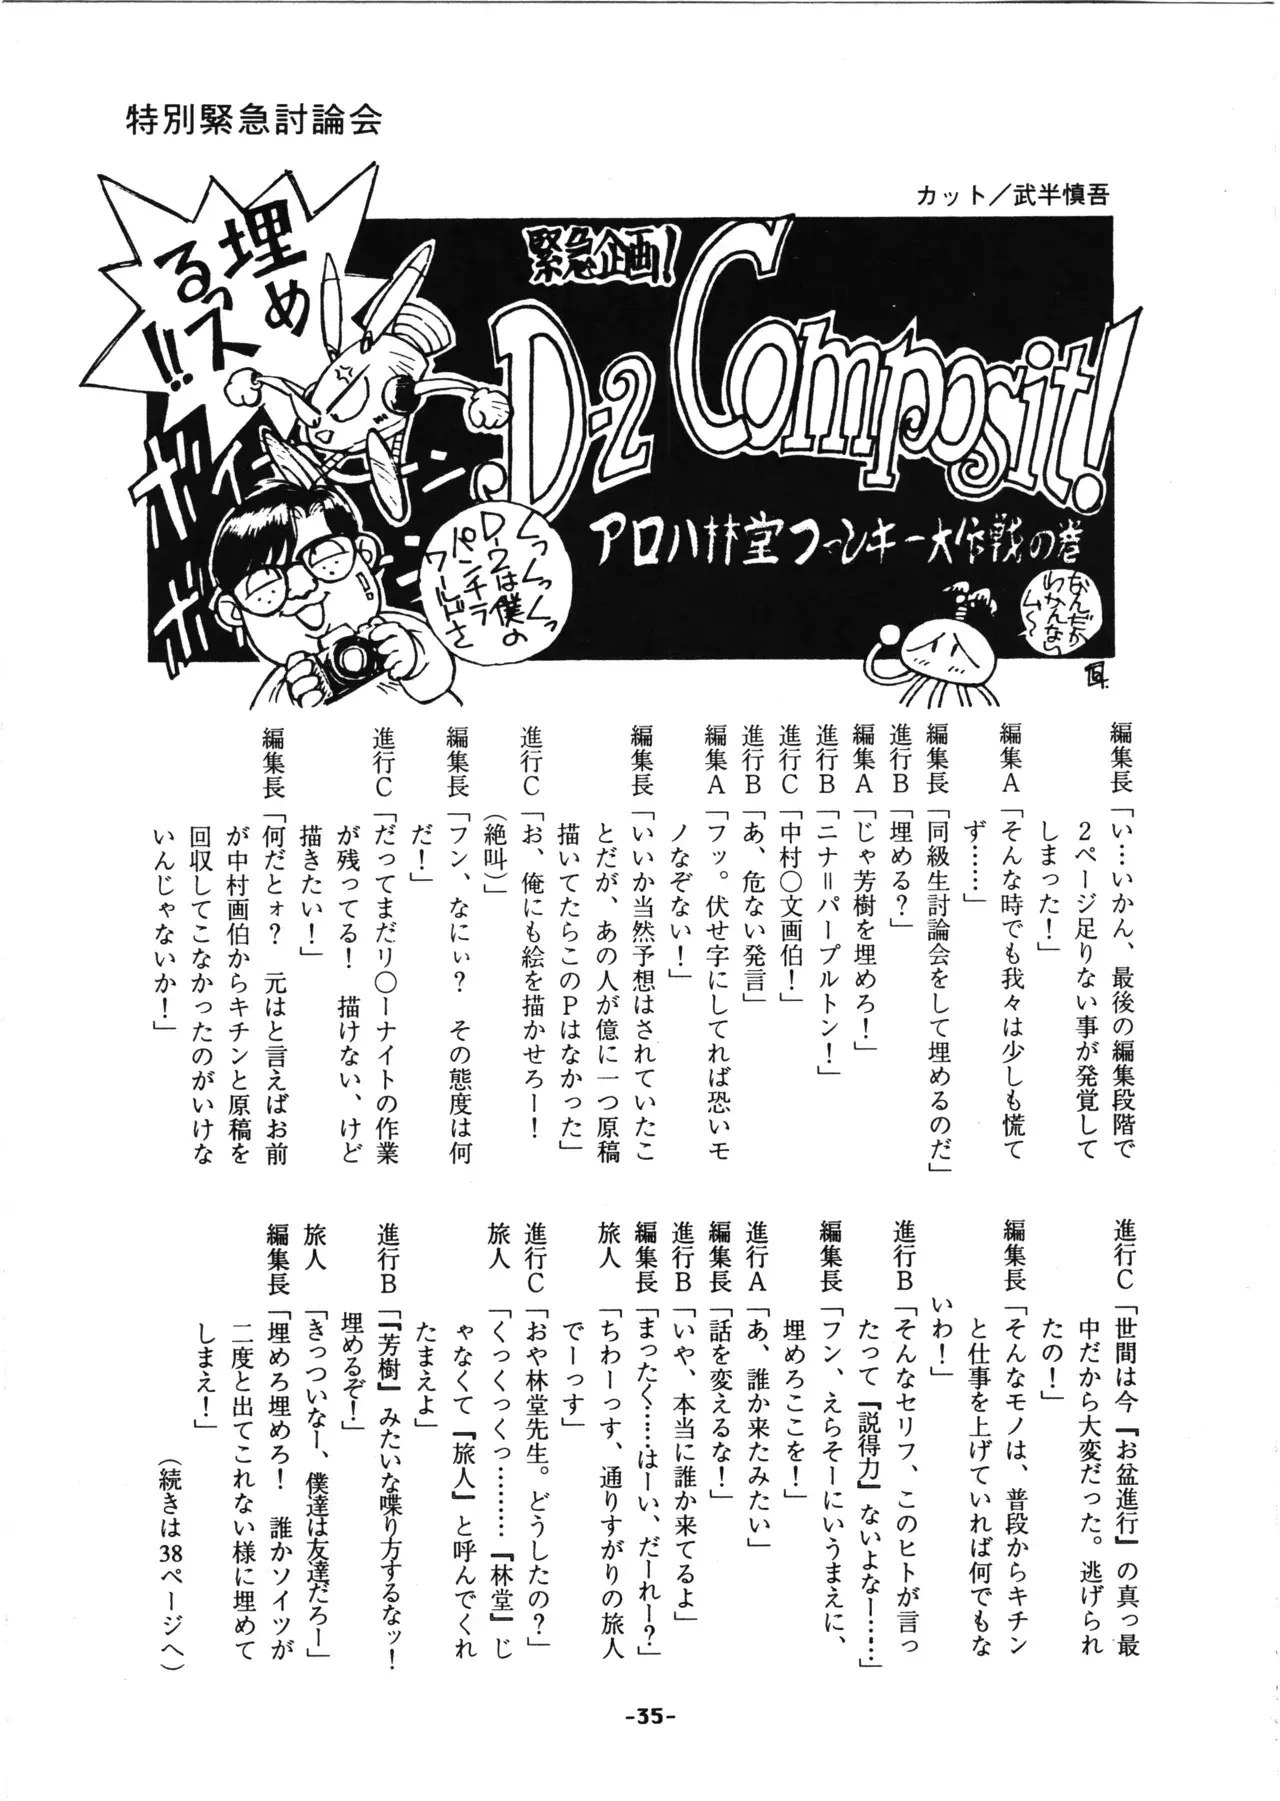 特別緊急討論会
カット／武半慎吾
緊急企画!
D-2 Composit!
アロハ林堂ファンキー大作戦の巻
埋め
るっス
!!
ボイーン
ボボ
くっくっくっ
D-2は僕の
パンチラ
ワールドさ
なんだか
わかんない
ム〜
編集長「い…いかん、最後の編集段階で
2ページ足りない事が発覚して
しまった！」
編集A「そんな時でも我々は少しも慌て
ず……」
編集長「同級生討論会をして埋めるのだ」
進行B「埋める？」
編集A「じゃ芳樹を埋めろ！」
進行B「ニナ＝パープルトン！」
進行C「中村〇文画伯！」
進行B「あ、危ない発言」
編集A「フッ。伏せ字にしてれば恐いモ
ノなぞない！」
編集長「いいか当然予想はされていたこ
とだが、あの人が億に一つ原稿
描いてたらこのPはなかった」
進行C「お、俺にも絵を描かせろー！
（絶叫）」
編集長「フン、なにぃ？　その態度は何
だ！」
進行C「だってまだリ〇ーナイトの作業
が残ってる！　描けない、けど
描きたい！」
編集長「何だとォ？　元はと言えばお前
が中村画伯からキチンと原稿を
回収してこなかったのがいけな
いんじゃないか！」
進行C「世間は今『お盆進行』の真っ最
中だから大変だった。逃げられ
たの！」
編集長「そんなモノは、普段からキチン
と仕事を上げていれば何でもな
いわ！」
進行B「そんなセリフ、このヒトが言っ
たって『説得力』ないよなー……」
編集長「フン、えらそーにいうまえに、
埋めろここを！」
進行A「あ、誰か来たみたい」
編集長「話を変えるな！」
進行B「いや、本当に誰か来てるよ」
編集長「まったく……はーい、だーれー？」
旅人「ちわーっす、通りすがりの旅人
でーっす」
進行C「おや林堂先生。どうしたの？」
旅人「くっくっくっ………『林堂』じ
ゃなくて『旅人』と呼んでくれ
たまえよ」
進行B「『芳樹』みたいな喋り方するなッ！
埋めるぞ！」
旅人「きっついなー、僕達は友達だろー」
編集長「埋めろ埋めろ！　誰かソイツが
二度と出てこれない様に埋めて
しまえ！」
（続きは38ページへ）
-35-